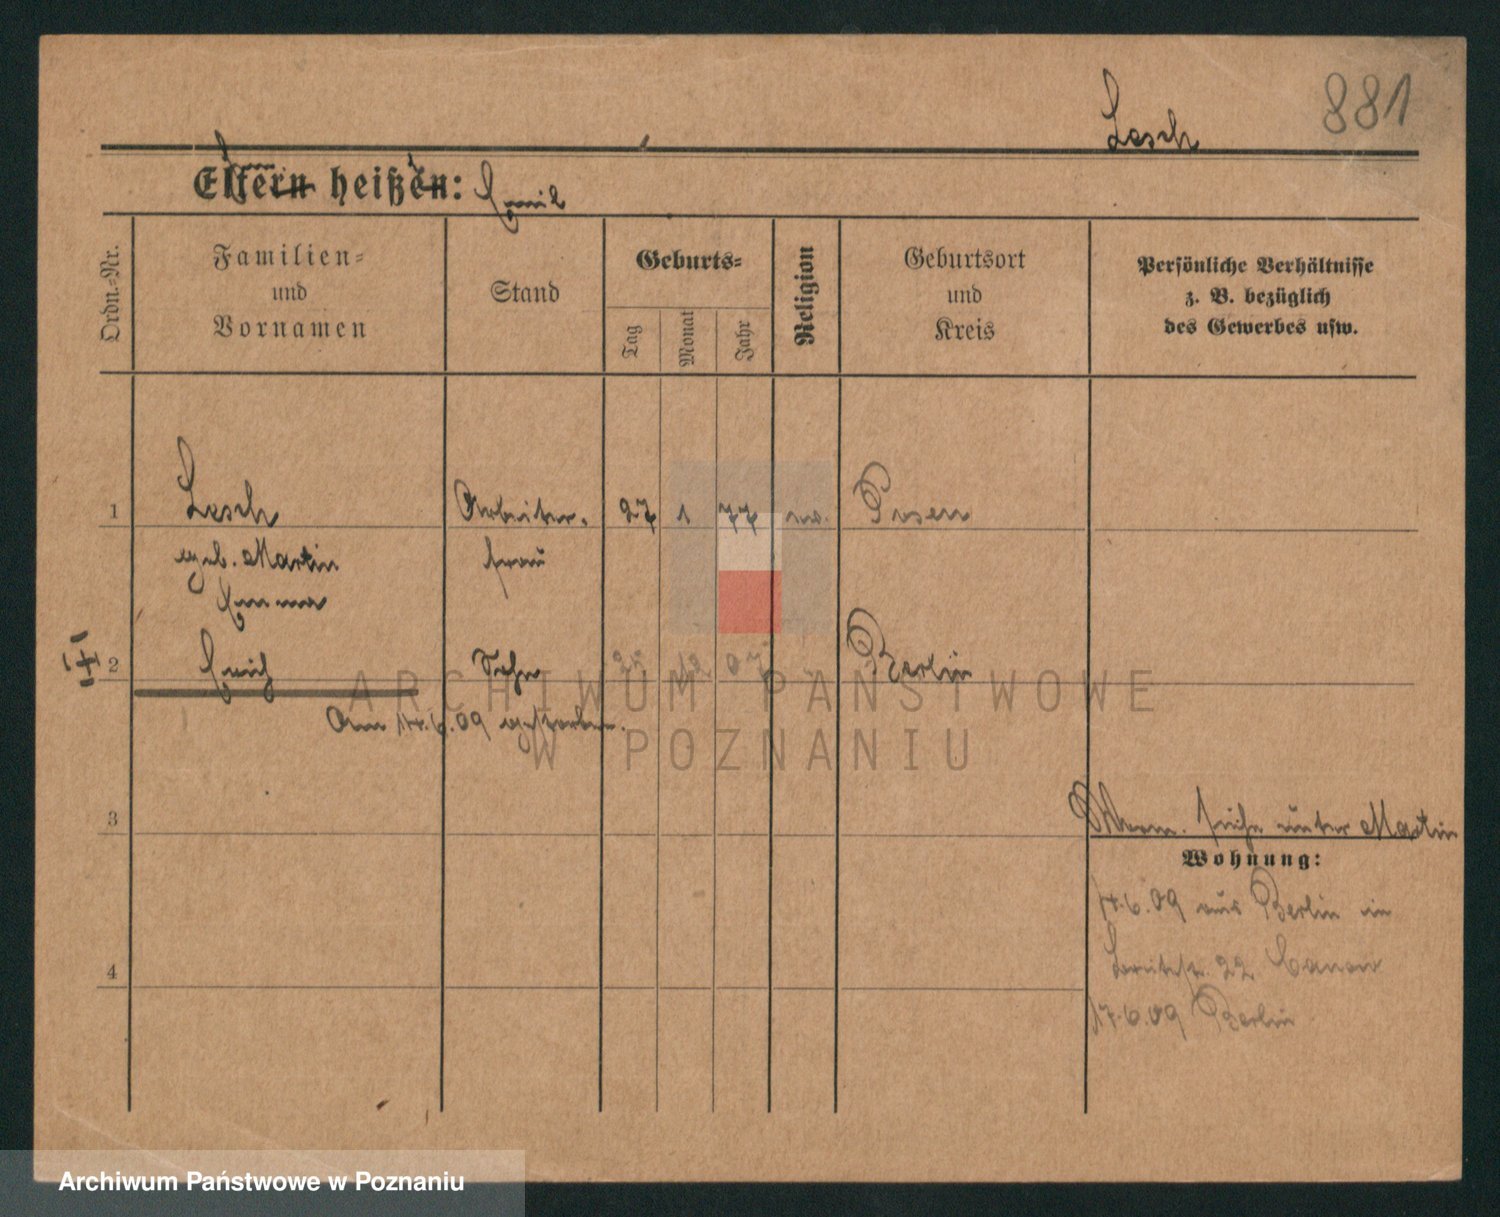 881
Lesch
Eltern heißen: Emil
Ordn.-Nr.
Familien-
und
Vornamen
Stand
Geburts-
Tag
Monat
Jahr
Religion
Geburtsort
und
Kreis
Persönliche Verhältnisse
z. B. bezüglich
des Gewerbes usw.
1 Lesch Arbeiter- 27 1 77 Posen
geb. Martin frau
Emma
2 Erich Sohn 25 12 07 Berlin
Am 14.6.09 gestorben.
3
siehe unter Martin
Wohnung:
14.6.09 aus Berlin in
22
4
17.6.09 Berlin
ARCHIWUM PAŃSTWOWE
W POZNANIU
Archiwum Państwowe w Poznaniu